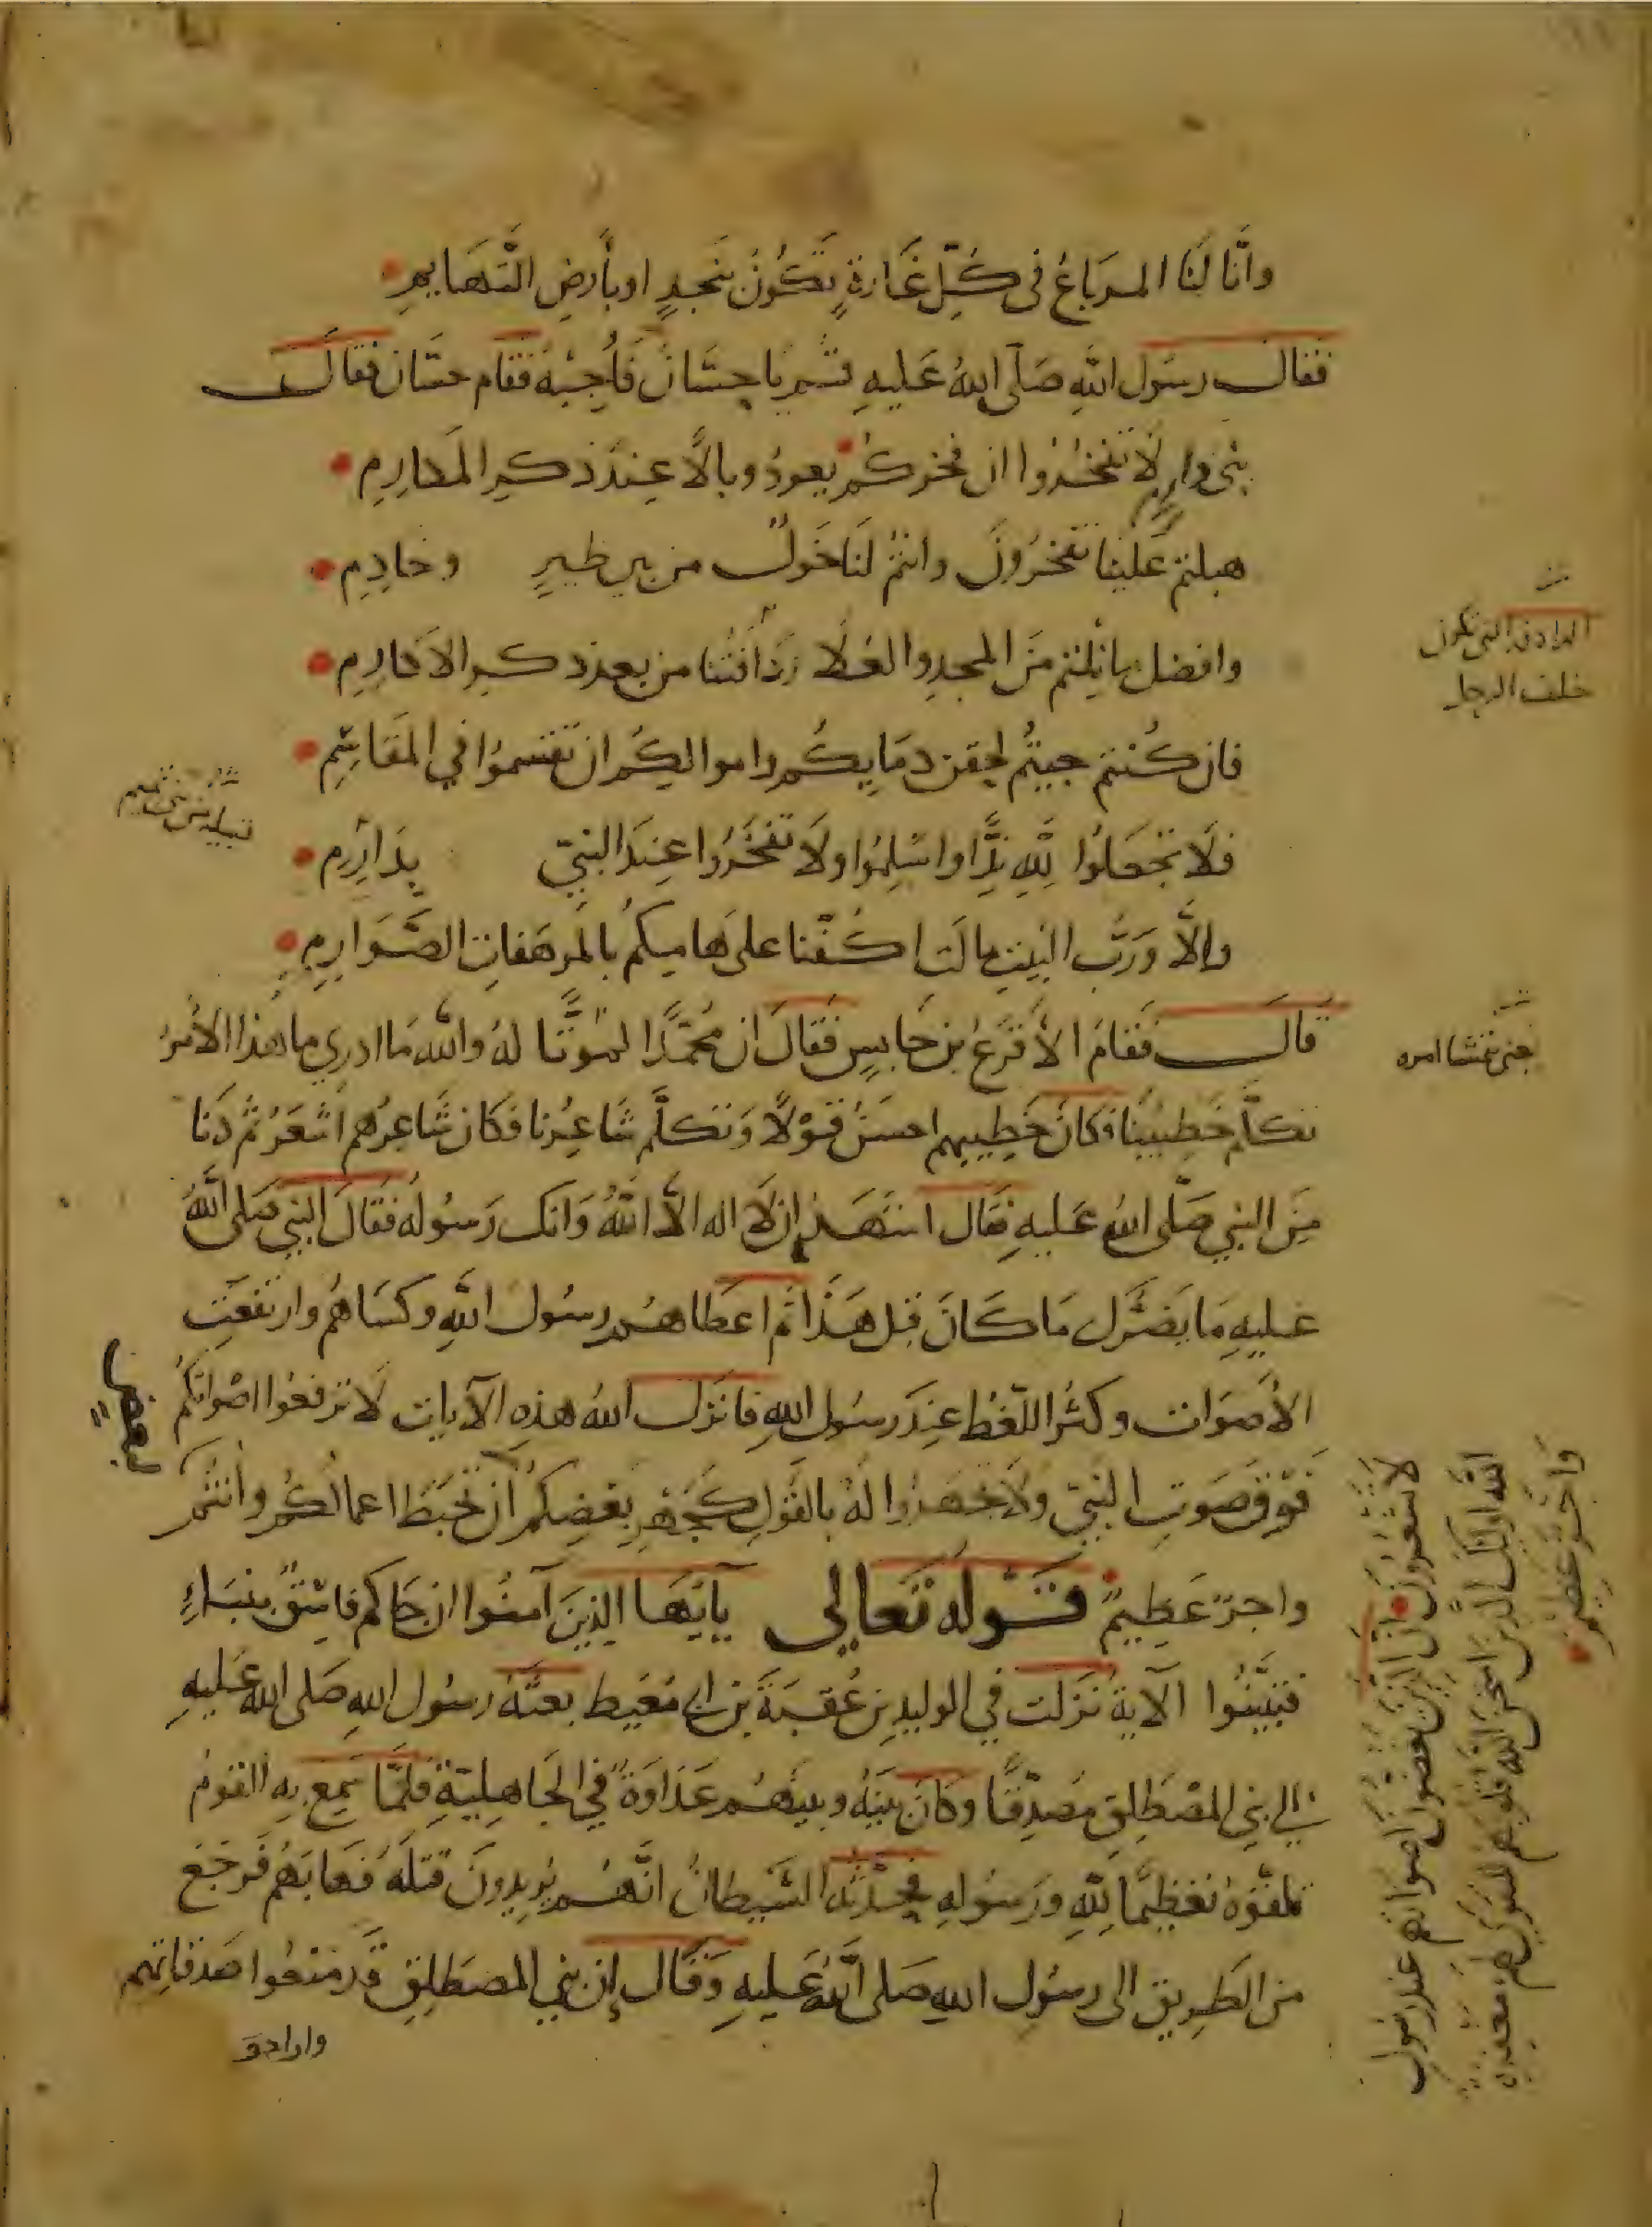 وانا لنا المرباع في كل غارة تكون بنجد او بأرض التهايم
فقال رسول الله صلى الله عليه قم يا حسان فأجبه فقام حسان فقال
بني دارم لا تفخروا ان فخركم يعود وبالا عند ذكر المكارم
هبلتم علينا تفخرون وانتم لنا خول من بين ظير وخادم
وافضل ما نلتم من المجد والعلا ردافتنا من بعد ذكر الاكارم
فان كنتم جيتم لحقن دمايكم واموالكم ان تقسموا في المقاسم
فلا تجعلوا لله ندا واسلموا ولا تفخروا عند النبي بدارم
والا ورب البيت مالت اكفنا على هامكم بالمرهفات الصوارم
قال فقام الأقرع بن حابس فقال ان محمدا لموتا له والله ما ادري ما هذا الأمر
تكلم خطيبنا فكان خطيبهم احسن قولا وتكلم شاعرنا فكان شاعرهم اشعر ثم دنا
من النبي صلى الله عليه فقال اشهد ان لا اله الا الله وانك رسوله فقال النبي صلى الله
عليه ما يضرك ما كان قبل هذا ثم اعطاهم رسول الله وكساهم وارتفعت
الأصوات وكثر اللغط عند رسول الله فانزل الله هذه الآيات لا ترفعوا اصواتكم
فوق صوت النبي ولا تجهروا له بالقول كجهر بعضكم ان تحبط اعمالكم وانتم
واجر عظيم قوله تعالى يايها الذين آمنوا ان جاكم فاسق بنباء
فتبينوا الآية نزلت في الوليد بن عقبة بن ابي معيط بعثه رسول الله صلى الله عليه
الى بني المصطلق مصدقا وكان بينه وبينهم عداوة في الجاهلية فلما سمع به القوم
تلقوه تعظيما لله ورسوله فحدثه الشيطان انهم يريدون قتله فهابهم فرجع
من الطريق الى رسول الله صلى الله عليه وقال إن بني المصطلق قد منعوا صدقاتهم
وارادو
التي تكون
خلف الرجل
قبيلة من بني تميم
يعني امره
لبعض
لا تشعرون ان الذين يغضون اصواتهم عند رسول
الله اولئك الذين امتحن الله قلوبهم للتقوى لهم مغفرة
واجر عظيم